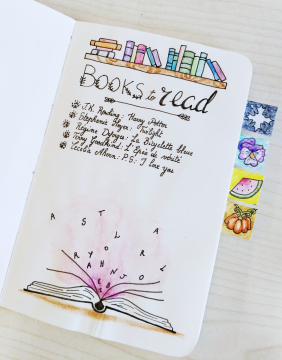 Books to read
J.K. Rowling: Harry Potter
Stephenie Meyer: Twilight
Régine Deforges: La Bicyclette bleue
Terry Goodkind: L'Épée de vérité
Cecelia Ahern: P.S: I love you
A S T L R
O A
R Y O L
A H N J O R